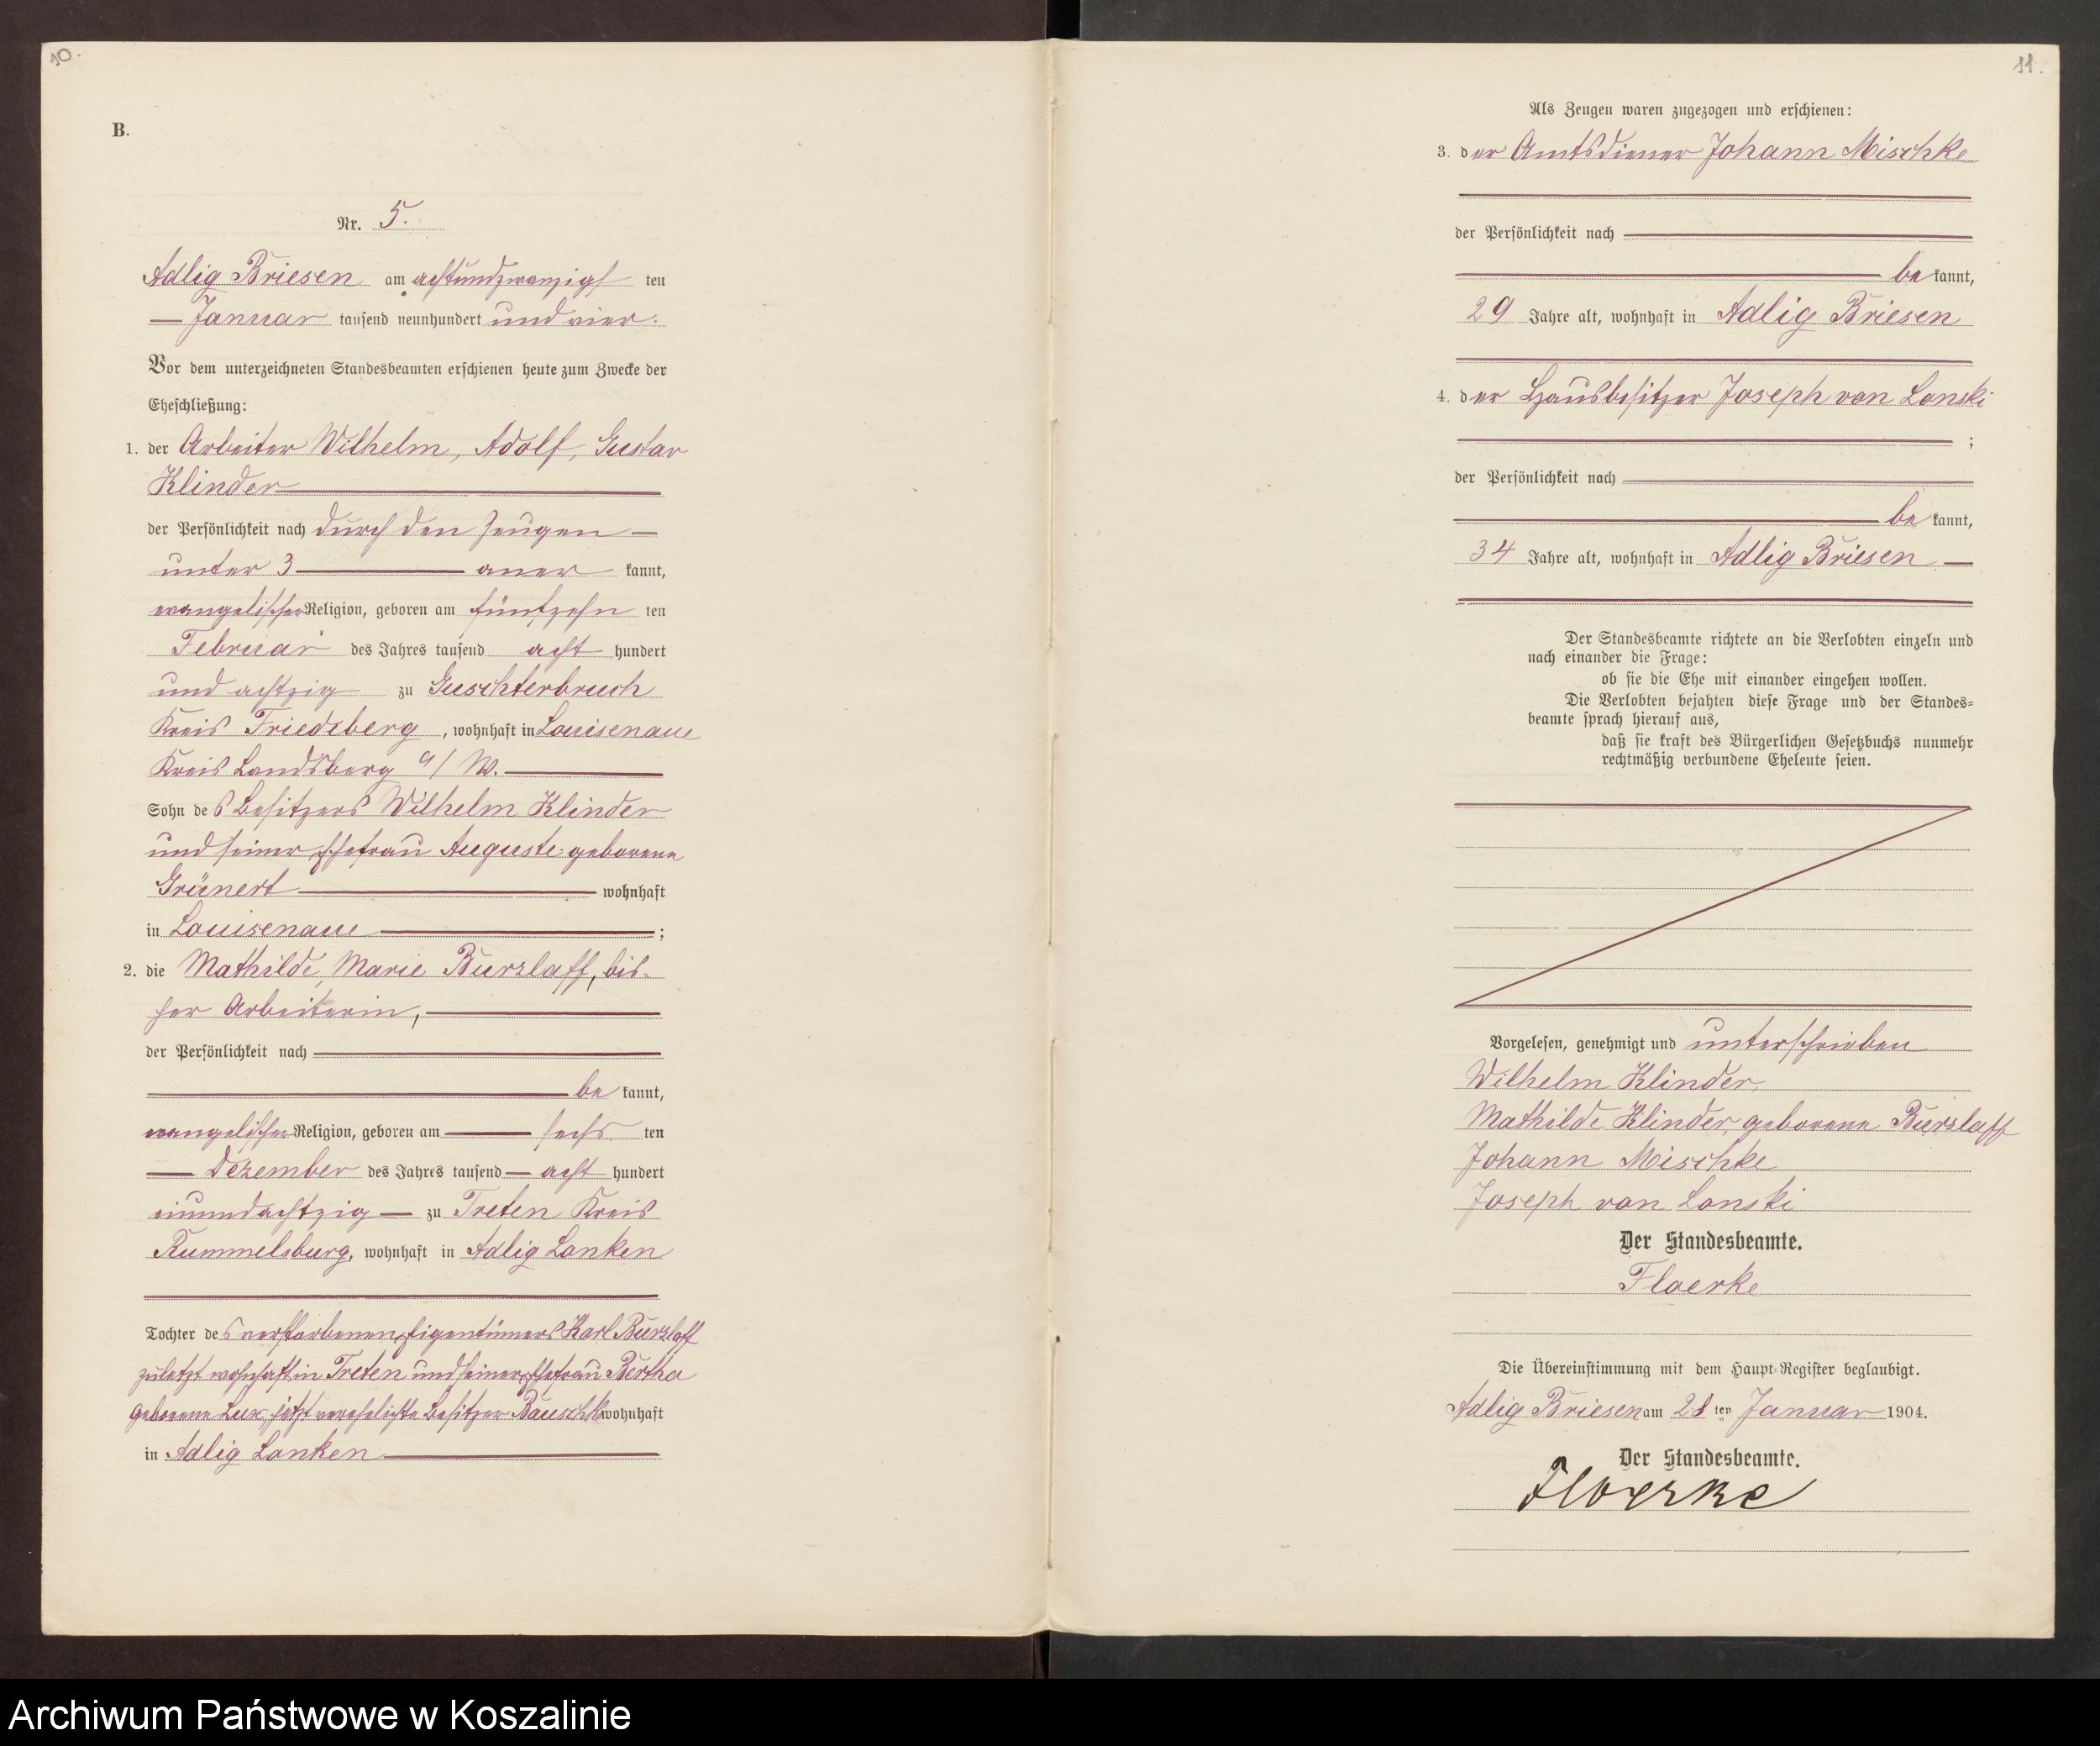 10.
B.
Nr. 5.
Adlig Briesen am achtundzwanzigs ten
Januar tausend neunhundert und vier.
Vor dem unterzeichneten Standesbeamten erschienen heute zum Zwecke der
Eheschließung:
1. der Arbeiter Wilhelm, Adolf, Gustav
Klinder
der Persönlichkeit nach durch den Zeugen
unter 3 aner kannt,
evangelischer Religion, geboren am fünfzehn ten
Februar des Jahres tausend acht hundert
und achtzig zu Guschterbruch
Kreis Friedeberg, wohnhaft in Louisenaue
Kreis Landsberg a/ W.
Sohn des Besitzers Wilhelm Klinder
und seiner Ehefrau Auguste geborene
Grünert wohnhaft
in Louisenaue ;
2. die Mathilde, Marie Burzlaff, bis-
her Arbeiterin,
der Persönlichkeit nach
be kannt,
evangelischer Religion, geboren am sechs ten
Dezember des Jahres tausend acht hundert
einundachtzig zu Treten Kreis
Rummelsburg, wohnhaft in Adlig Lanken
Tochter des verstorbenen Eigentümers Karl Burzlaff
zuletzt wohnhaft in Treten und seiner Ehefrau Bertha
geborene Lux, jetzt verehelichte Besitzer Rauschke wohnhaft
in Adlig Lanken
11.
Als Zeugen waren zugezogen und erschienen:
3. der Amtsdiener Johann Mischke
der Persönlichkeit nach
be kannt,
29 Jahre alt, wohnhaft in Adlig Briesen
4. der Hausbesitzer Joseph von Lonski
;
der Persönlichkeit nach
be kannt,
34 Jahre alt, wohnhaft in Adlig Briesen
Der Standesbeamte richtete an die Verlobten einzeln und
nach einander die Frage:
ob sie die Ehe mit einander eingehen wollen.
Die Verlobten bejahten diese Frage und der Standes-
beamte sprach hierauf aus,
daß sie kraft des Bürgerlichen Gesetzbuchs nunmehr
rechtmäßig verbundene Eheleute seien.
Vorgelesen, genehmigt und unterschrieben
Wilhelm Klinder
Mathilde Klinder geborene Burzlaff
Johann Mischke
Joseph von Lonski
Der Standesbeamte.
Floerke
Die Übereinstimmung mit dem Haupt-Register beglaubigt.
Adlig Briesen am 28 ten Januar 1904.
Der Standesbeamte.
Floerke
Archiwum Państwowe w Koszalinie